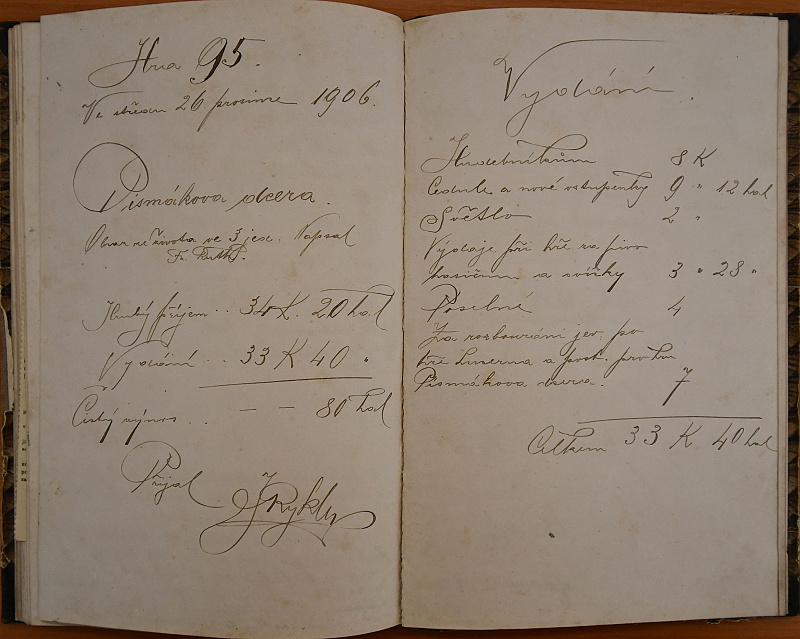 Hra 95.
Ve středu 26 prosince 1906.
Písmákova dcera.
Obraz ze života ve 3 jed. Napsal
Fr. Ruth.
Hrubý příjem .. 34 K. 20 hal
Vydání .. 33 K 40 "
Čistý výnos . — — 80 hal
Přijal
JRykl
Vydání.
Hudebníkům 8 K
Cedule a nové vstupenky 9 " 12 hal
Světlo 2 "
Výdaje při hře za pivo
hasičům a svíčky 3 " 28 "
Poselné 4
Za rozbourání jev. po
hře Lucerna a post. pro hru
Písmákova dcera. 7
Celkem 33 K 40 hal